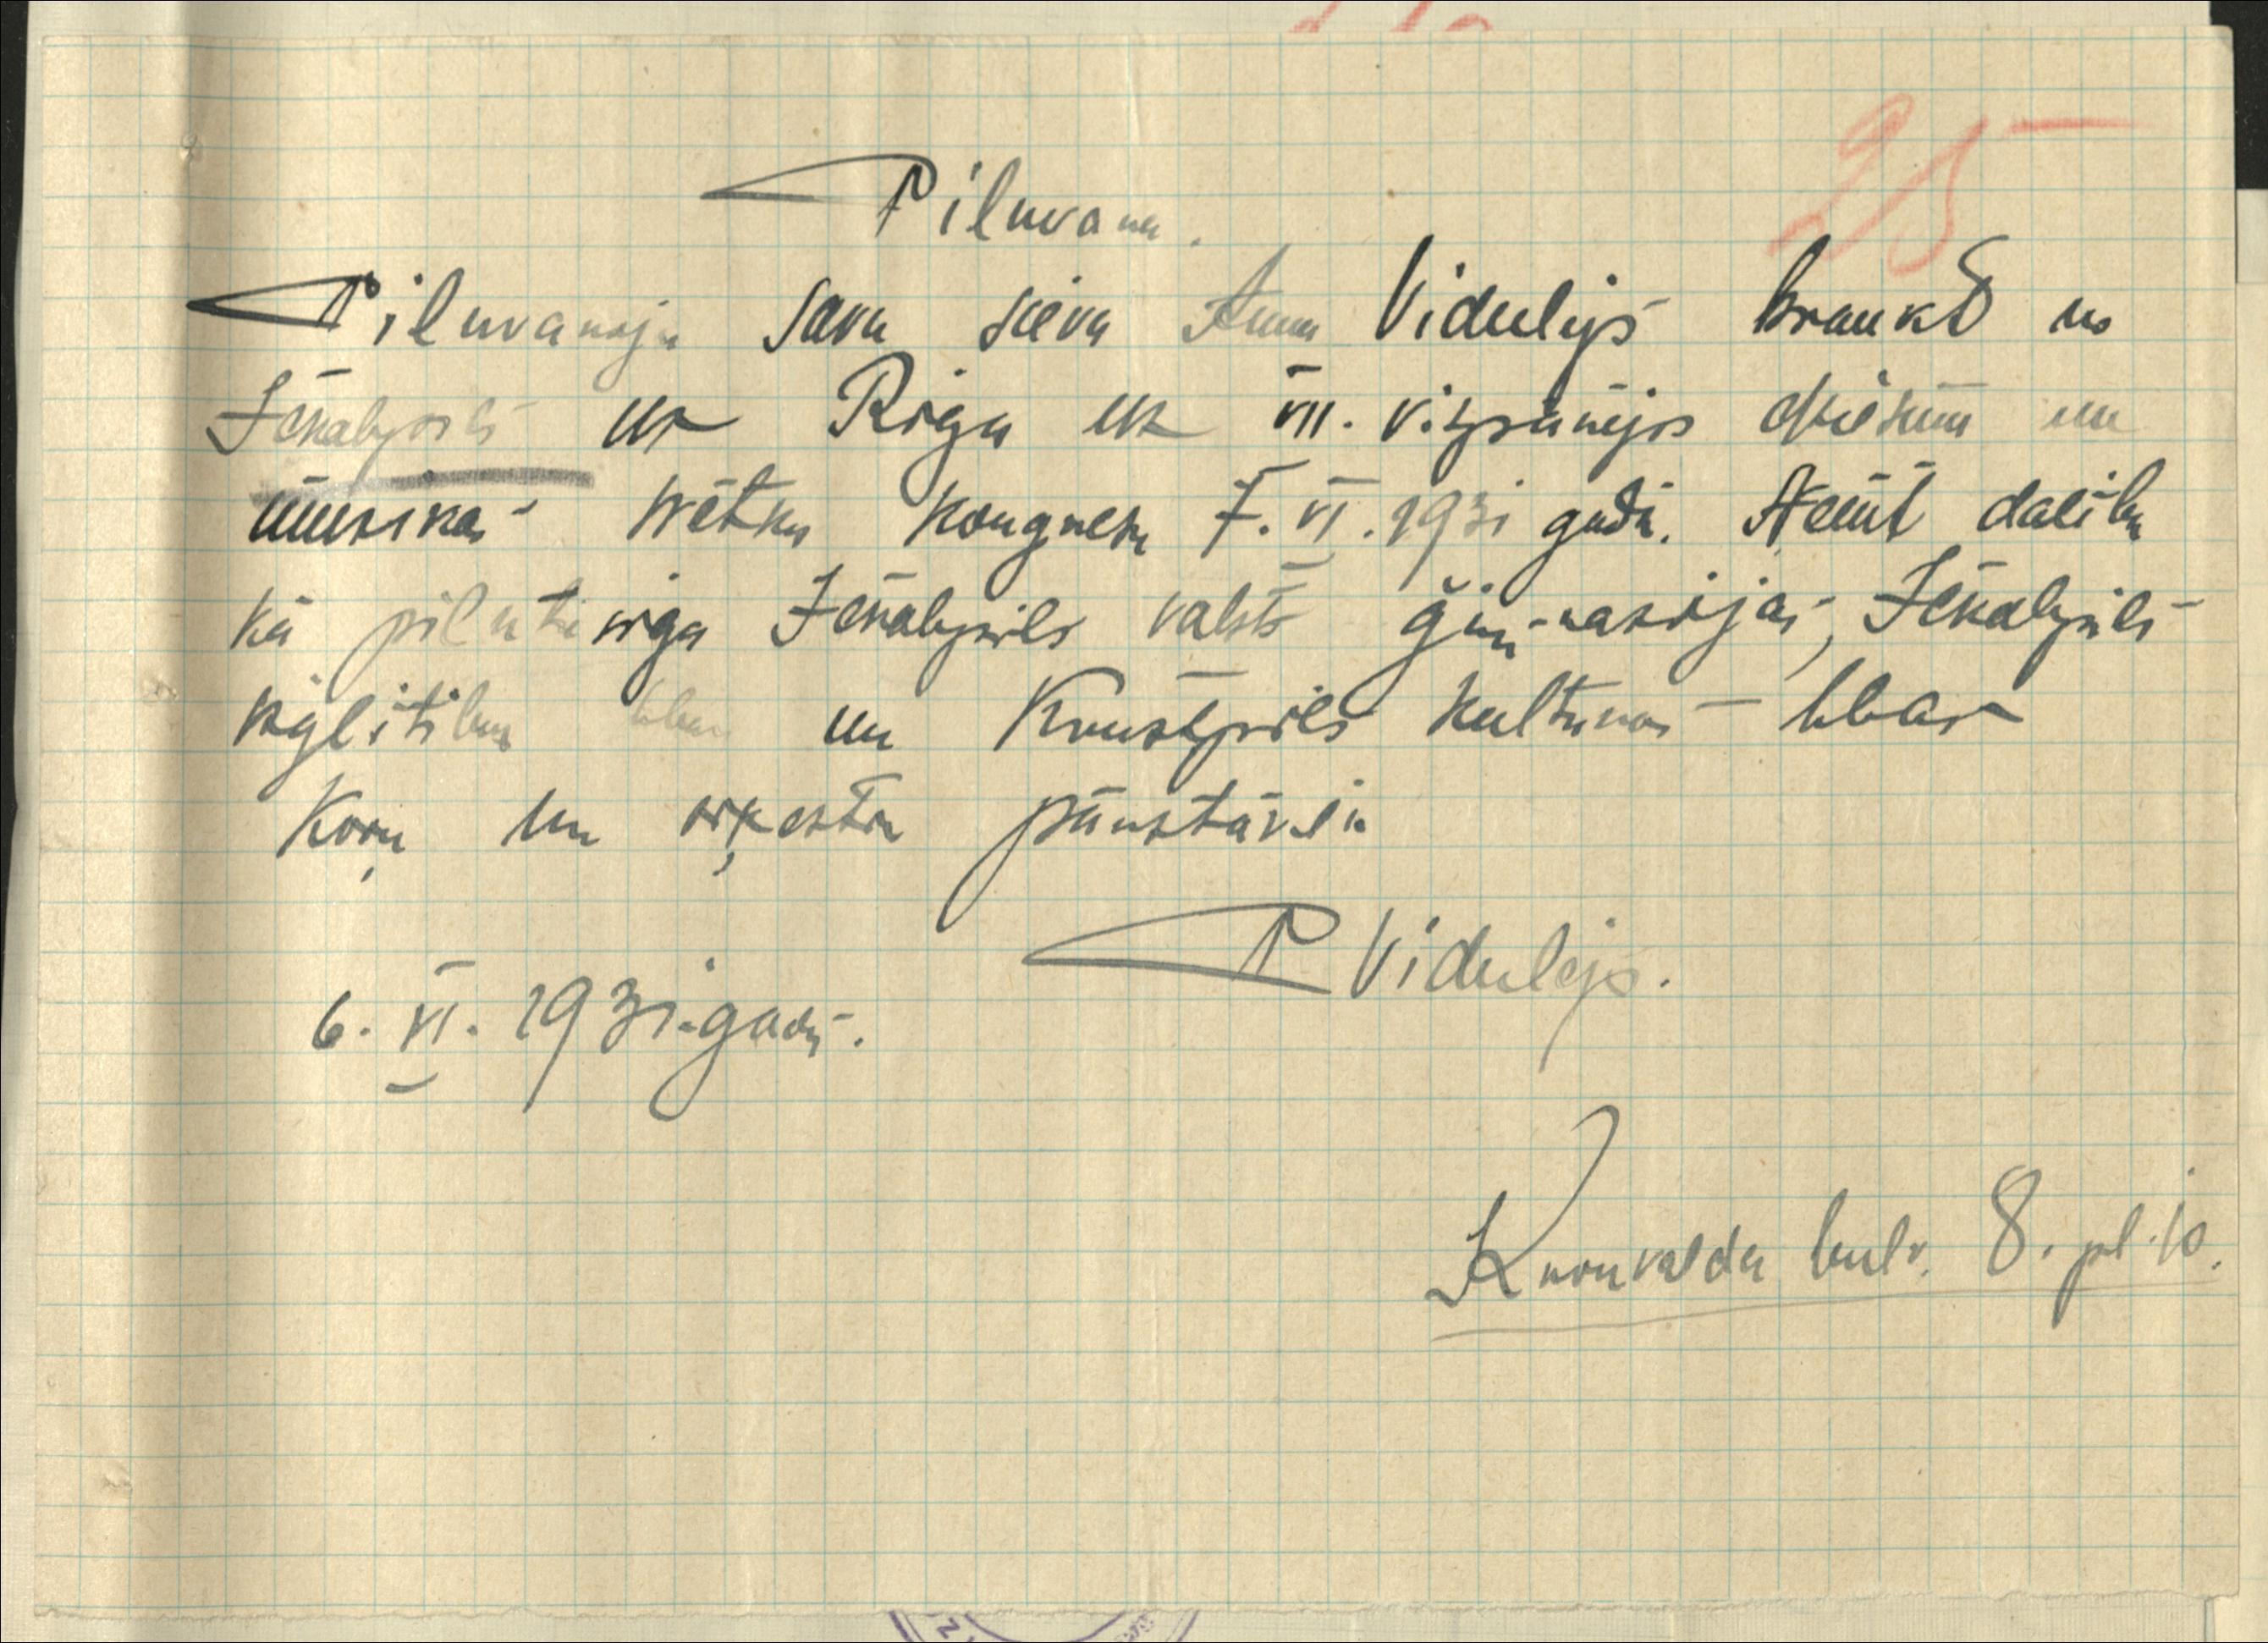 25
Pilnvara.
Pilnvaroju savu sievu Annu Vidulejs braukt no
Jēkabpils uz Rigu uz VII. vispārējos dziesmu un
mūsikas svētku kongresu 7. VI. 1931 gadā. Ņemt dalību
kā pilntiesīga Jēkabpils valsts ģimnasijas, Jēkabpils
izglitibas bbas un Krustpils kulturas bbas
Koŗu un orķestŗu pārstāvei.
P Vidulejs.
6. VI. 1931. gadā.
Kronvalda bulv. 8. pl. 10.